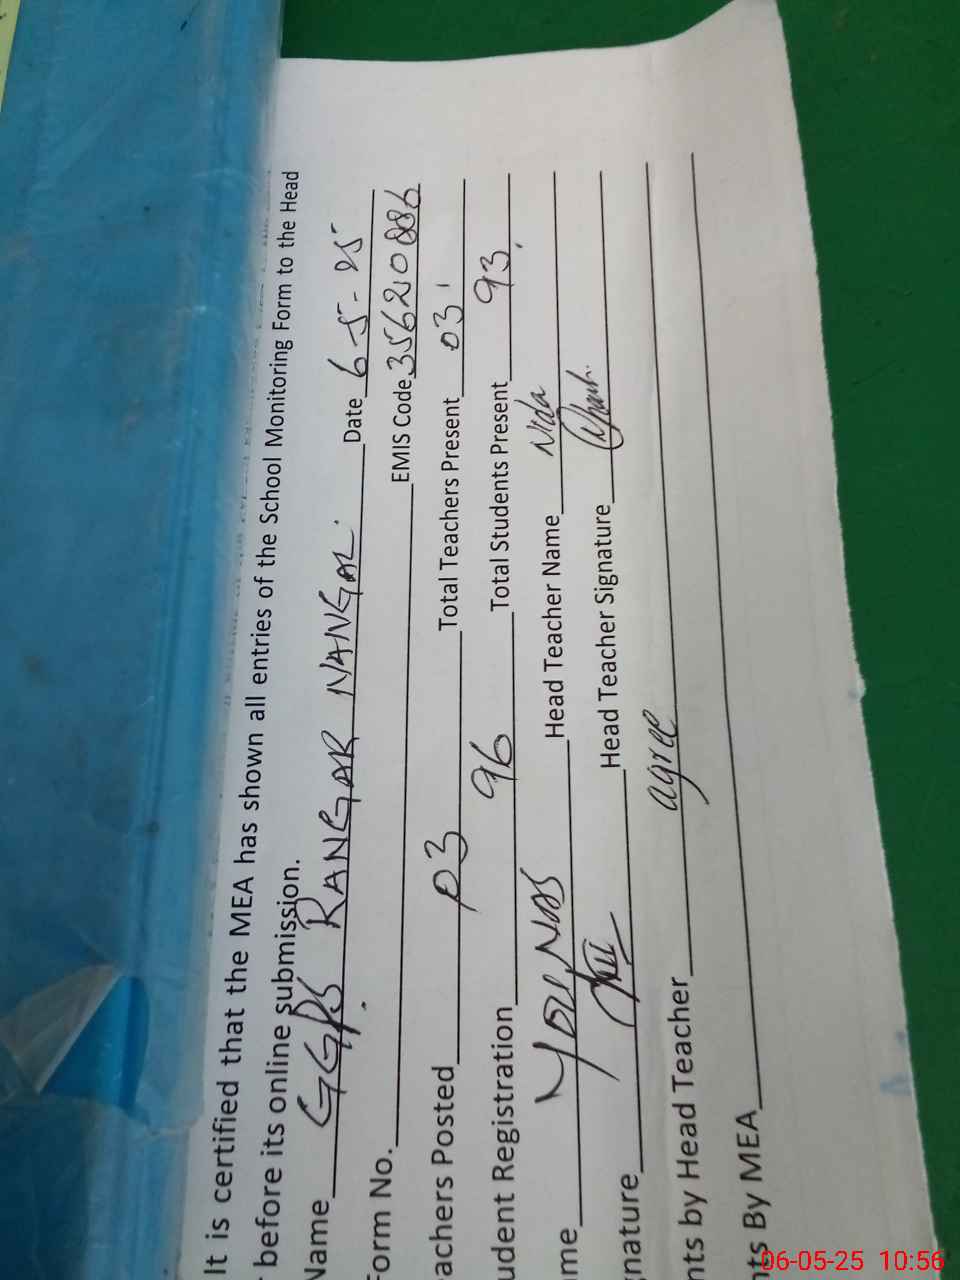 It is certified that the MEA has shown all entries of the School Monitoring Form to the Head
before its online submission.
Name GGPS RANGAR NANGAL Date 6-5-25
Form No. EMIS Code 35620886
achers Posted 03 Total Teachers Present 03
udent Registration 96 Total Students Present 93
me YOUNAS Head Teacher Name Nida
nature Head Teacher Signature
nts by Head Teacher agree
nts By MEA
06-05-25 10:56